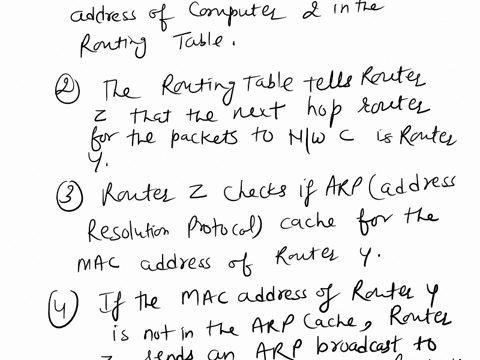 address of Computer 2 in the
Routing Table.
② The Routing Table tells Router
Z that the next hop router
for the packets to N/W C is Router
Y.
③ Router Z checks if ARP (address
Resolution Protocol) cache for the
MAC address of Router Y.
④ If the MAC address of Router Y
is not in the ARP Cache, Router
Z sends an ARP broadcast to